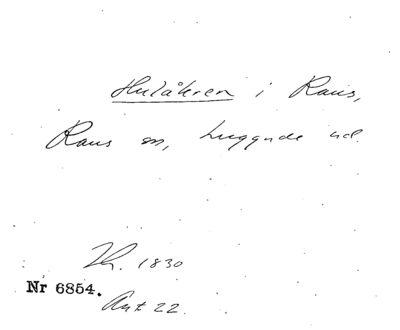 Hulåkren i Raus,
Raus sn, Luggude hd.
Th. 1830
Nr 6854.
Ant 22.